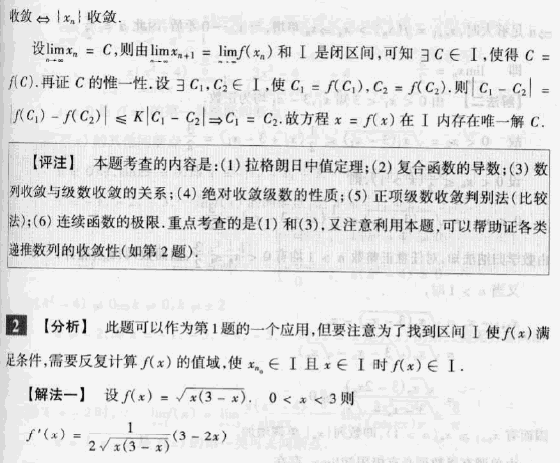 收敛 ⇔ {xₙ}收敛.
设lim_{n→∞} xₙ = C,则由lim_{n→∞} xₙ₊₁ = lim_{n→∞} f(xₙ) 和 Ⅰ 是闭区间,可知 ∃C ∈ Ⅰ,使得 C =
f(C).再证 C 的惟一性.设 ∃ C₁,C₂ ∈ Ⅰ,使 C₁ = f(C₁),C₂ = f(C₂).则|C₁ − C₂| =
|f(C₁) − f(C₂)| ≤ K|C₁ − C₂|⇒C₁ = C₂.故方程 x = f(x) 在 Ⅰ 内存在唯一解 C.
【评注】 本题考查的内容是:(1) 拉格朗日中值定理;(2) 复合函数的导数;(3) 数
列收敛与级数收敛的关系;(4) 绝对收敛级数的性质;(5) 正项级数收敛判别法(比较
法);(6) 连续函数的极限.重点考查的是(1) 和(3),又注意利用本题,可以帮助证各类
递推数列的收敛性(如第2题).
2 【分析】 此题可以作为第1题的一个应用,但要注意为了找到区间 Ⅰ 使 f(x) 满
足条件,需要反复计算 f(x) 的值域,使 x_{n₀} ∈ Ⅰ 且 x ∈ Ⅰ 时 f(x) ∈ Ⅰ.
【解法一】 设 f(x) = √(x(3 − x)). 0 < x < 3 则
f′(x) = 1/(2√(x(3 − x))) (3 − 2x)